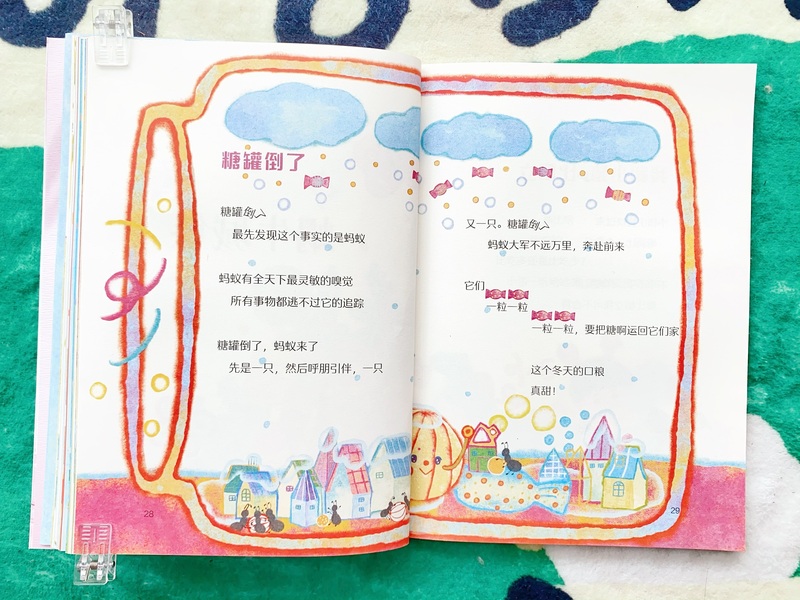 糖罐倒了
糖罐倒了
最先发现这个事实的是蚂蚁
蚂蚁有全天下最灵敏的嗅觉
所有事物都逃不过它的追踪
糖罐倒了，蚂蚁来了
先是一只，然后呼朋引伴，一只
28
又一只。糖罐倒了
蚂蚁大军不远万里，奔赴前来
它们
一粒一粒
一粒一粒，要把糖啊运回它们家
这个冬天的口粮
真甜！
29